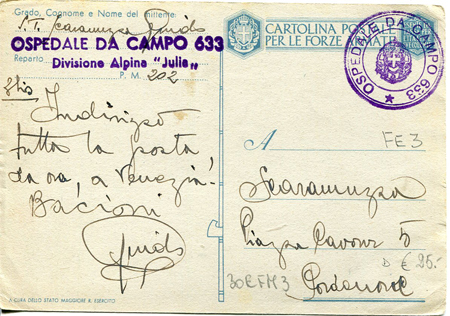 Grado, Cognome e Nome del mittente:
S. T. Scaramuzza Guido
OSPEDALE DA CAMPO 633
Reparto
Divisione Alpina "Julia"
P. M. 202
Indirizzo
tutta la posta
da ora, a Venezia.
Bacioni
Guido
A CURA DELLO STATO MAGGIORE R. ESERCITO
CARTOLINA POSTALE
PER LE FORZE ARMATE
OSPEDALE DA CAMPO 633
A
FE3
Scaramuzza
Piazza Cavour 5
€ 25.-
30EFM3
Pordenone